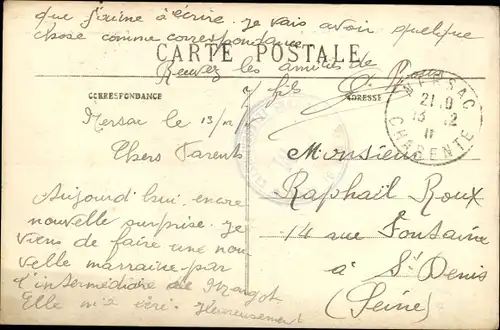 que j'aime à écrire. Je vais avoir quelque
chose comme correspondance.
CARTE POSTALE
Recevez les amitiés de
fils
CORRESPONDANCE
ADRESSE
MERSAC
21 0
13 12
CHARENTE
Mersac le 13/12/
Chers Parents
Aujourd'hui encore
nouvelle surprise. Je
viens de faire une nou
velle marraine par
l'intermédiaire de Margot
Elle m'a écri. Heureusement
Monsieur
Raphaël Roux
14 rue Fontaine
à St Denis
(Seine)